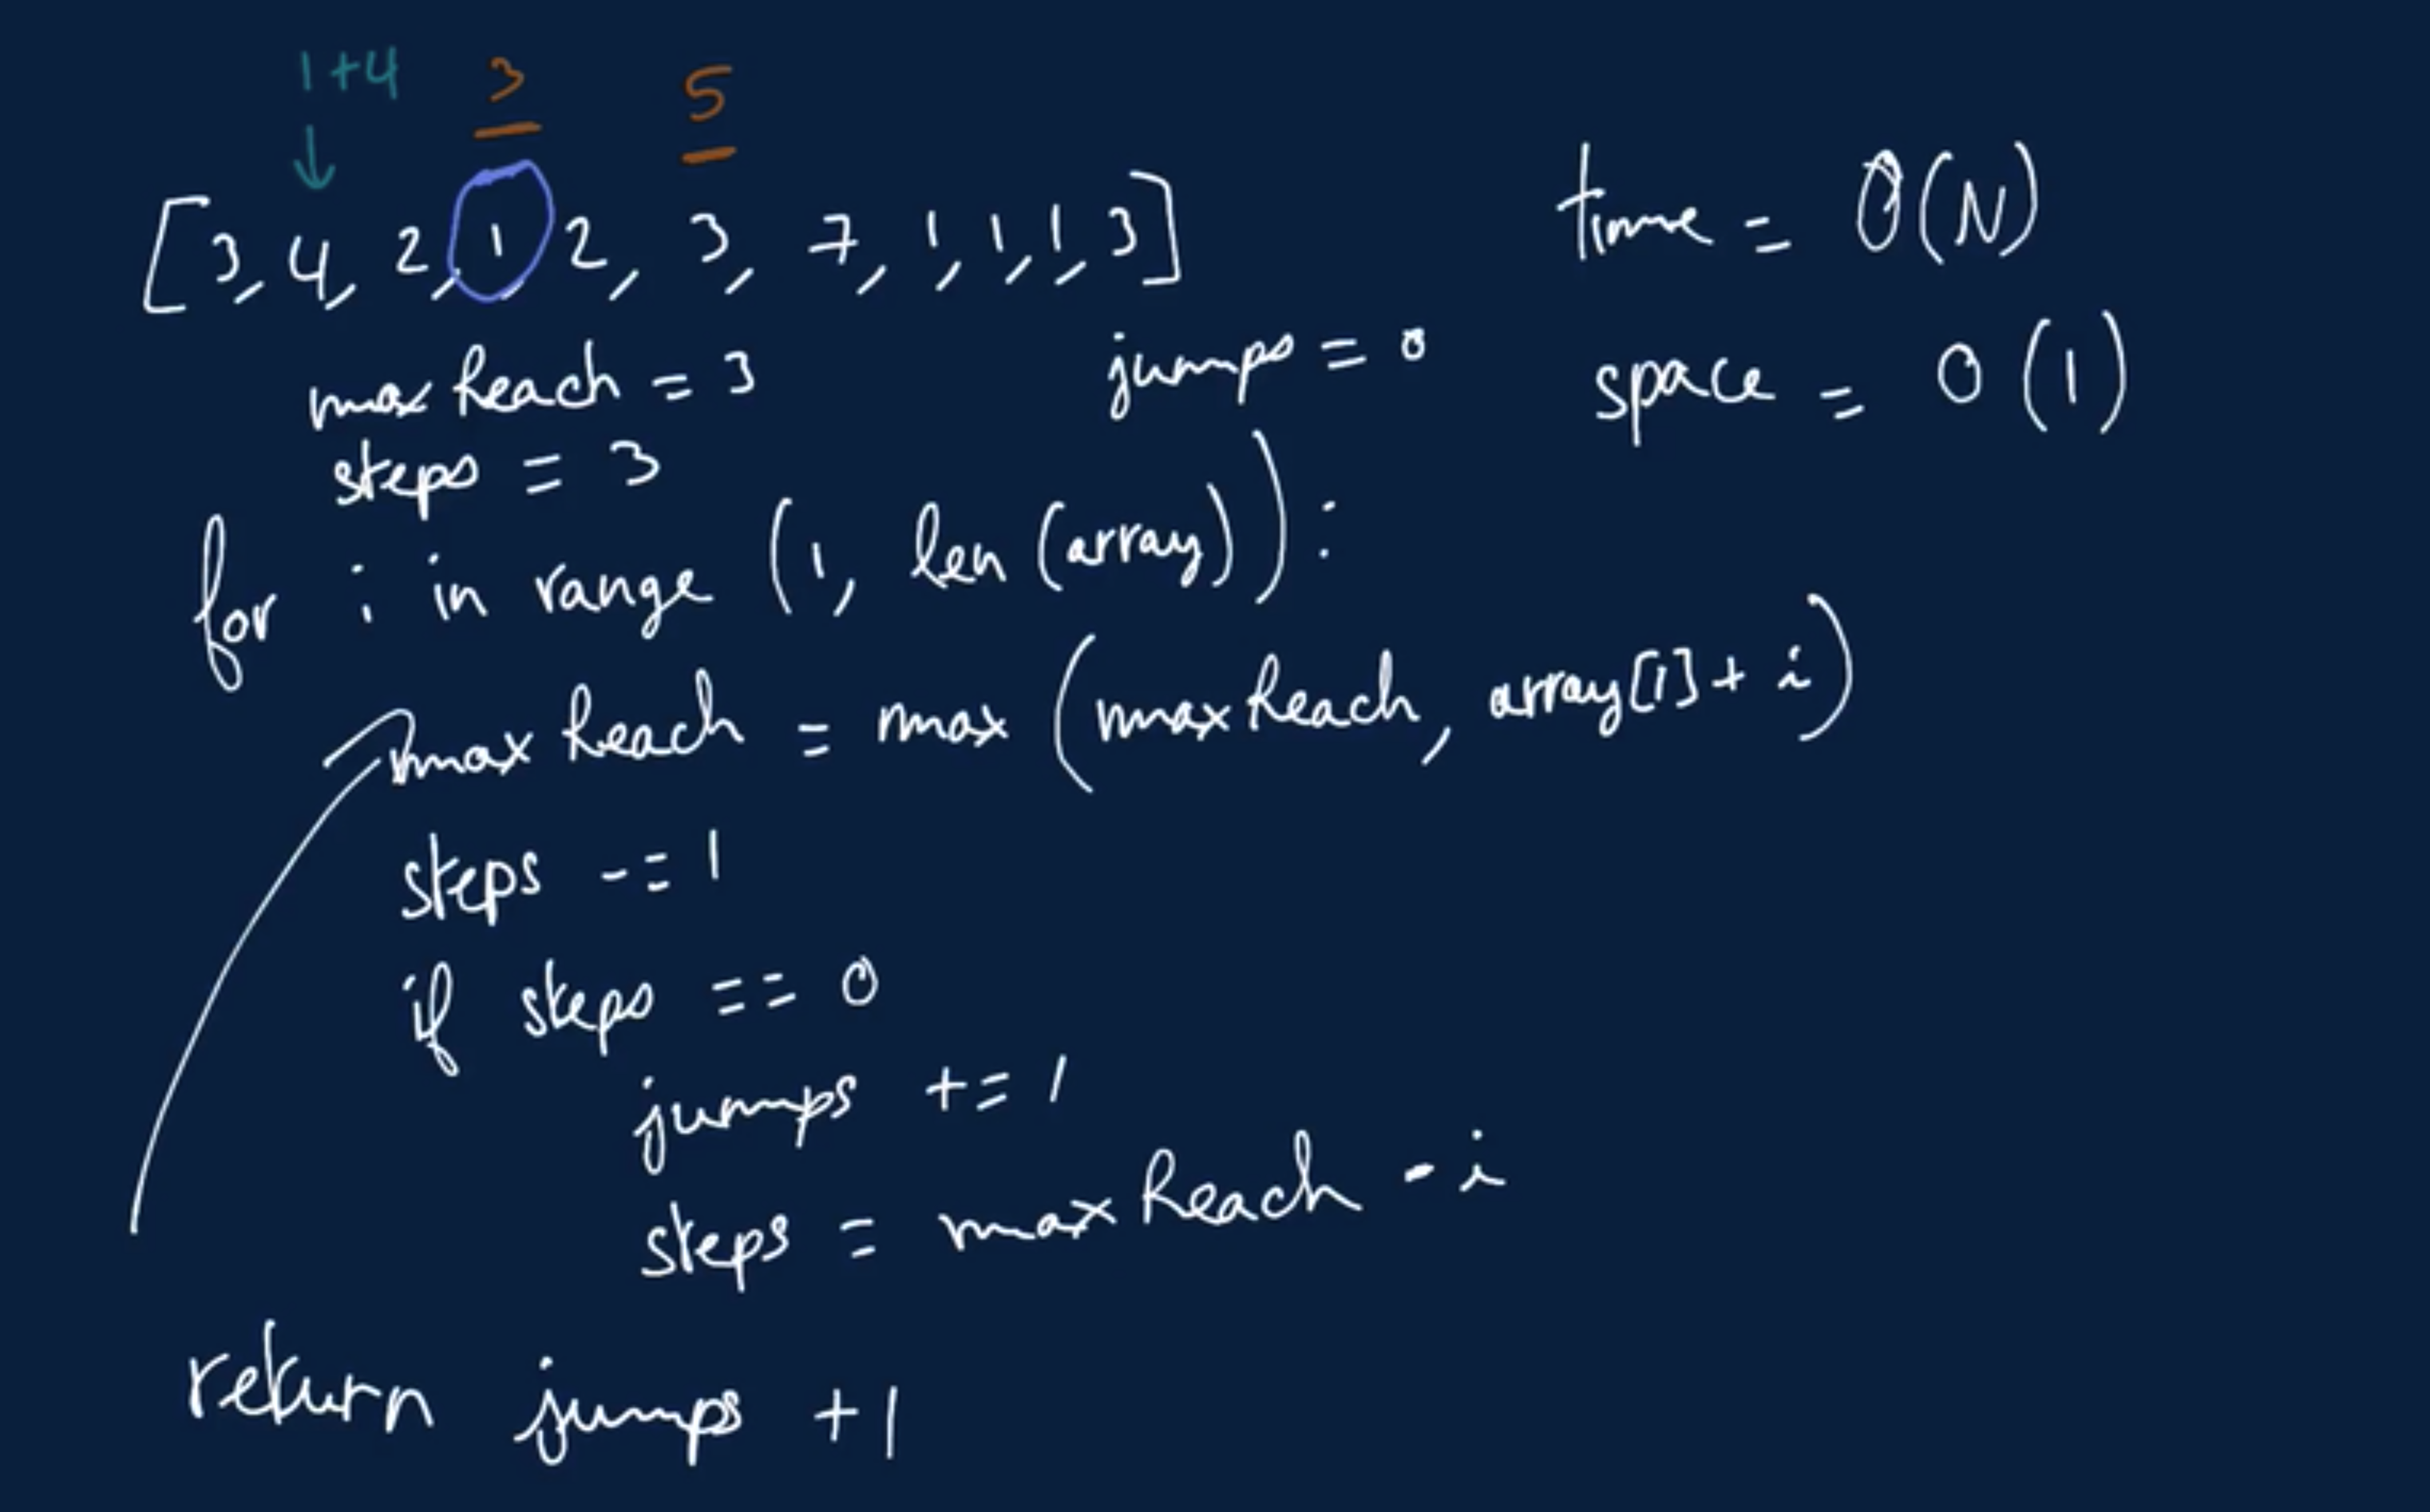 1+4 3 5
[3, 4, 2, 1, 2, 3, 7, 1, 1, 1, 3]
time = O(N)
maxReach = 3
jumps = 0
space = O(1)
steps = 3
for i in range (1, len(array)):
maxReach = max (maxReach, array[i] + i)
steps -= 1
if steps == 0
jumps += 1
steps = maxReach - i
return jumps +1